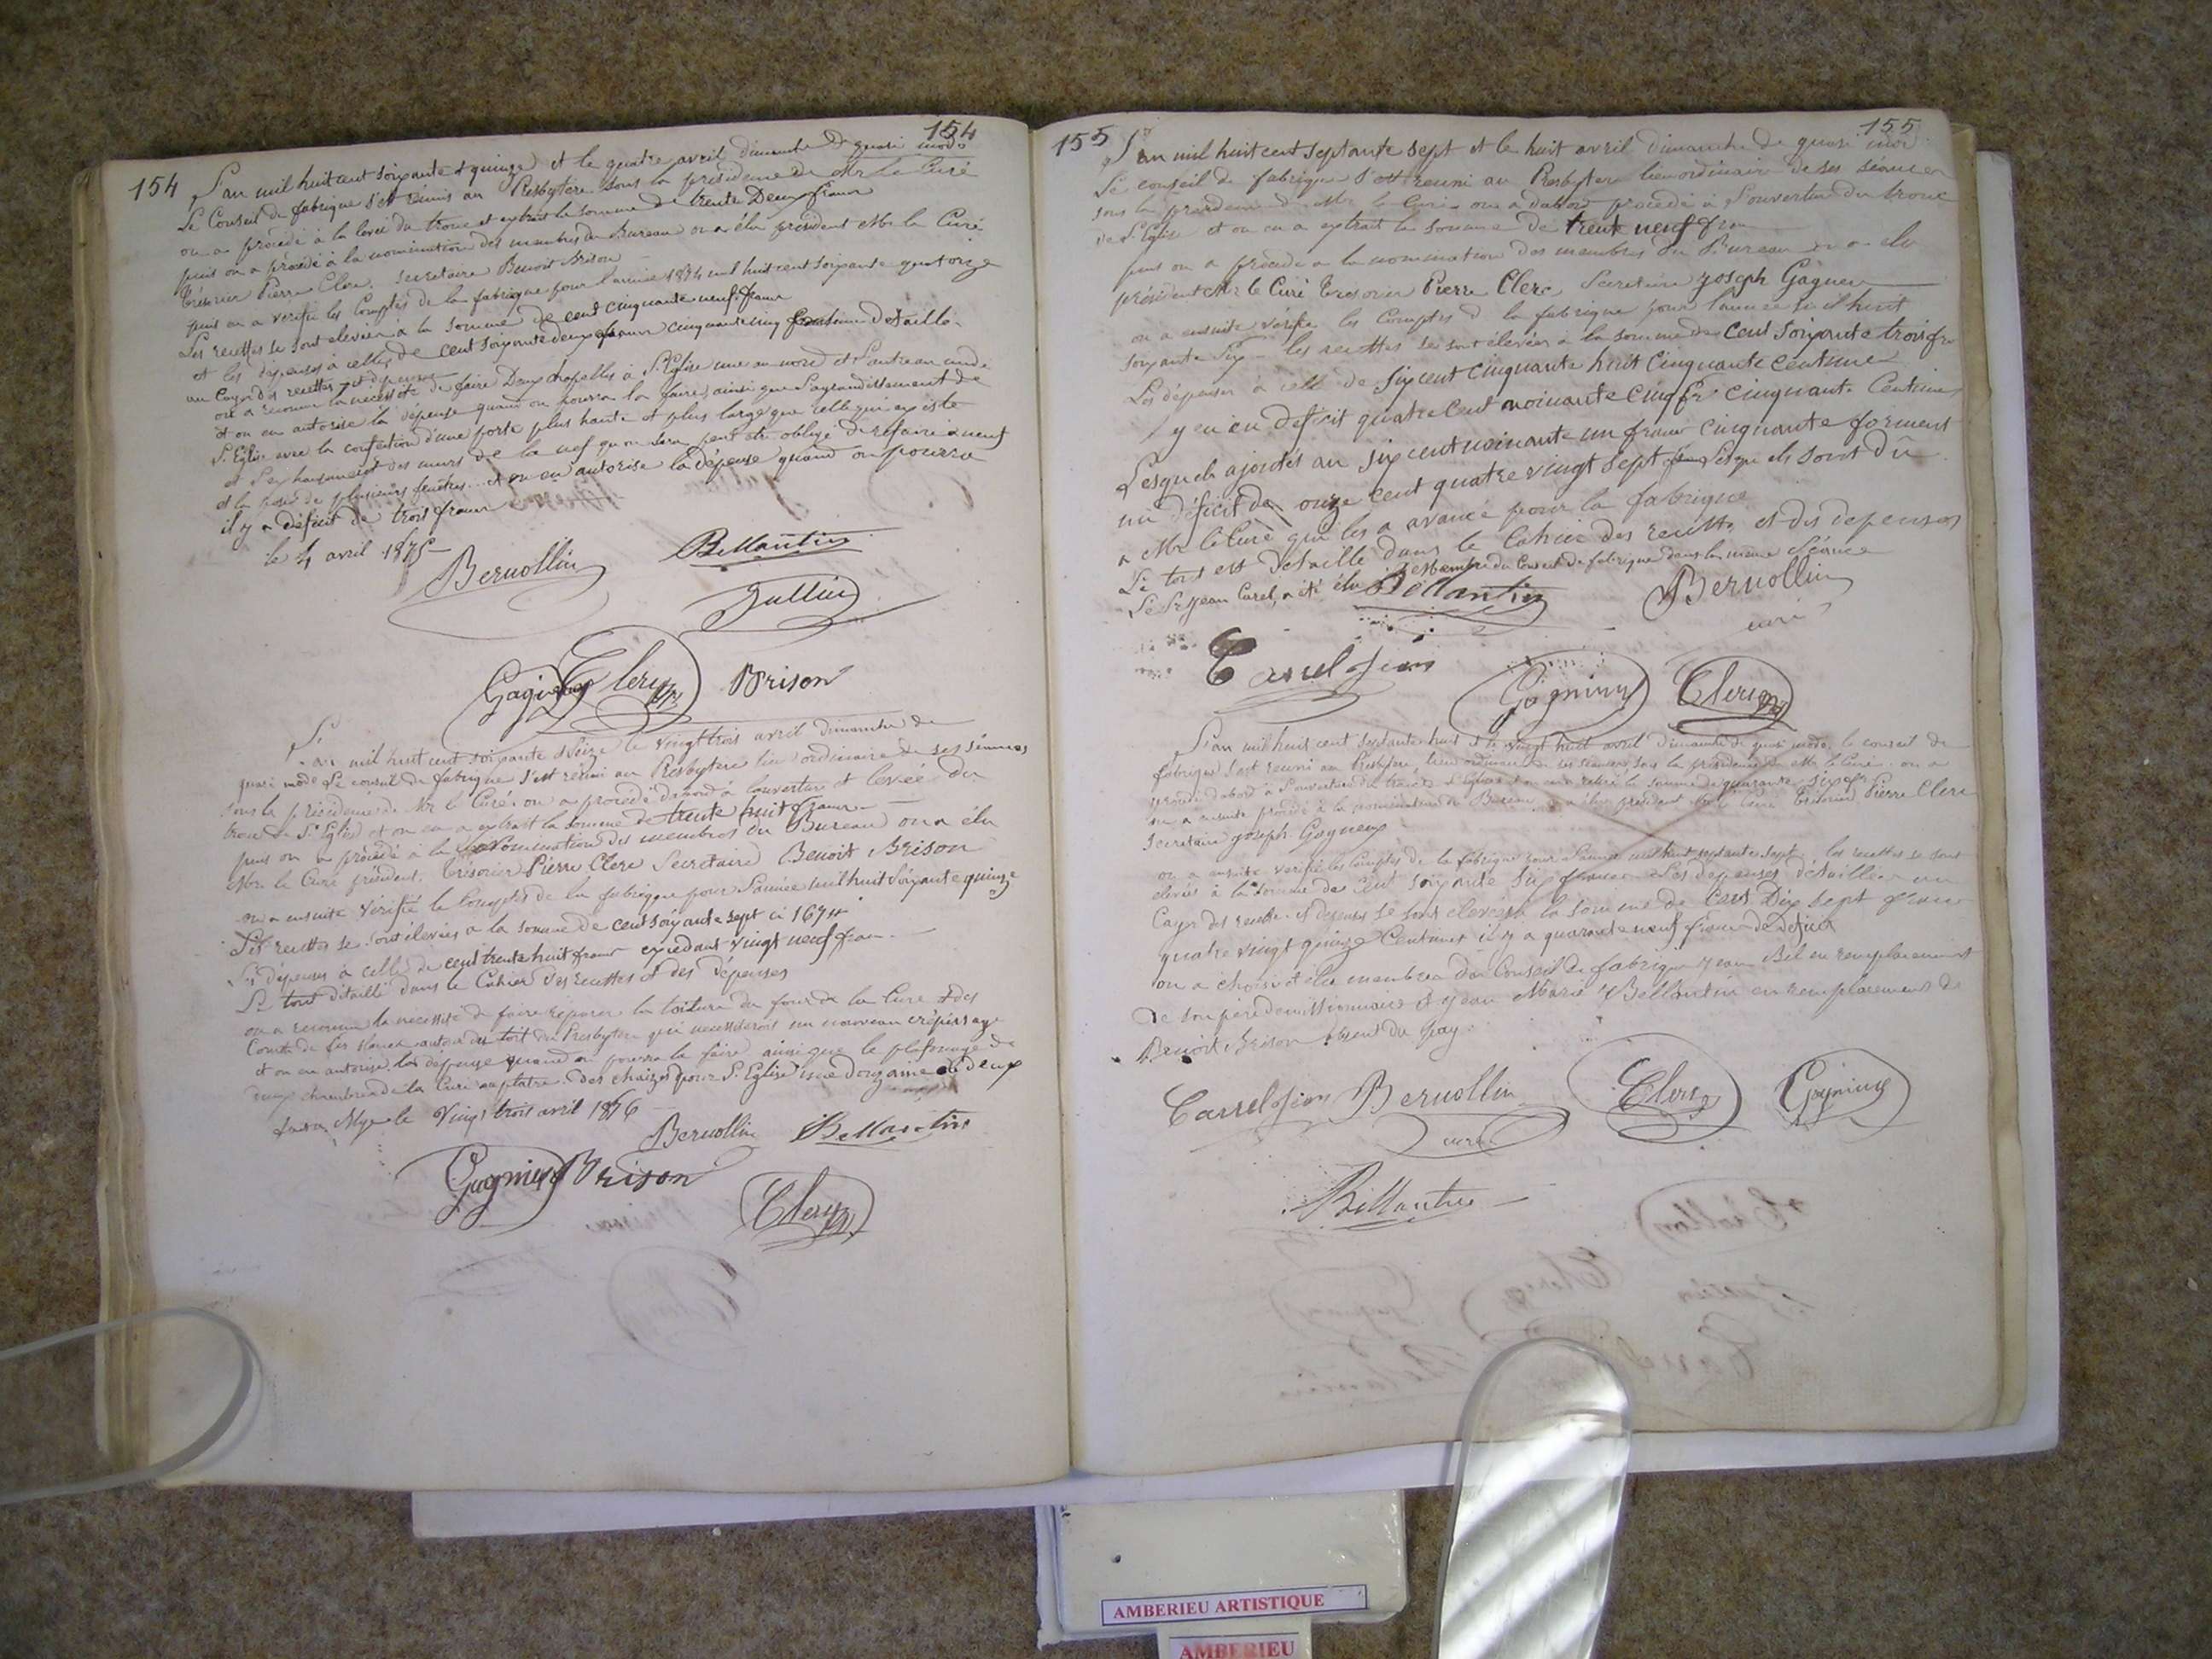 154
154
L'an mil huit cent soixante & quinze et le quatre avril dimanche de quasi modo
Le Conseil de fabrique s'est réunis au Presbytère sous la présidence de Mr Le Curé
on a procédé à la levée du tronc et extrait la somme de trente Deux francs
puis on a procédé à la nomination des membres du Bureau on a élu président Mr le Curé
Trésorier Pierre Clerc, secretaire Benoit Brison
puis on a verifié les Comptes de la fabrique pour l'année 1874 mil huit cent soixante quatorze
Les recettes se sont elevées à la somme de cent cinquante neuf francs
et les depenses à celles de cent soixante deux francs cinquante cinq centimes détaillés
au Cayer des recettes et dépenses
on a reconnu la nécessité de faire Deux chapelles à l'Eglise une au nord et l'autre au midi
et on en autorise la dépense quand on pourra la faire, ainsi que l'agrandissement de
l'Eglise avec la confection d'une porte plus haute et plus large que celle qui existe
et l'exhaussement des murs de la nef qu'on sera peut etre obligé de refaire à neuf
et la pose de plusieurs fenêtres... et on en autorise la dépense quand on pourra
il y a déficit de trois francs
le 4 avril 1875
Bernollin Bellantin
Jullin
Gagnieux Clerc Brison
L'an mil huit cent soixante & seize le vingt trois avril dimanche de
quasi modo Le conseil de fabrique s'est réuni au Presbytère lieu ordinaire de ses séances
sous la présidence de Mr le Curé on a procédé d'abord à l'ouverture et levée du
tronc de l'Eglise et on en a extrait la somme de trente huit francs
puis on a procédé à la nomination des membres du Bureau on a élu
Mr. le Curé président, trésorier Pierre Clerc Secretaire Benoit Brison
on a ensuite vérifié le Comptes de la fabrique pour l'année mil huit soixante quinze
Les recettes se sont élevées a la somme de cent soixante sept ci 167 #
Les dépenses à celle de cent trente huit francs excédant vingt neuf francs
Le tout détaillé dans le Cahier des recettes et des dépenses
on a reconnu la nécessité de faire réparer la toiture du four de la Cure & des
autour du toit du Presbytère qui nécessiteront un nouveau crépissage
et on en autorise la dépense quand on pourra la faire ainsi que le plafonnage de
deux chambres de la Cure au platre des chaises pour l'Eglise une douzaine ou deux
le vingt trois avril 1876
Bernollin Bellantin
Gagnieux Brison
Clerc
155
155
L'an mil huit cent septante sept et le huit avril dimanche de quasi modo
Le conseil de fabrique s'est reuni au Presbytere lieu ordinaire de ses séances
sous la présidence de Mr le Curé on a d'abord procédé à l'ouverture du tronc
de l'Eglise et on en a extrait la somme de trente neuf fr
puis on a procédé a la nomination des membres du Bureau on a élu
président Mr le Curé trésorier Pierre Clerc Secretaire Joseph Gagneux
on a ensuite vérifié les Comptes de la fabrique pour l'année mil huit
soixante Six les recettes se sont élevées à la somme de cent soixante trois fr
Les dépenses à celle de six cent cinquante huit cinquante centimes
y a eu deficit quatre cent noinante cinq fr cinquante Centimes
Lesquels ajoutés au six cent noinante un francs cinquante forment
un déficit de onze cent quatre vingt sept lesquels sont dû
a Mr le Curé qui les a avancé pour la fabrique
Le tout est détaillé dans le Cahier des recettes et des depenses
Le Sr Jean Carrel, a été élu membre du Conseil de fabrique dans la même Séance
Bellantin Bernollin
curé
Carrel Jean Gagnieux Clerc
L'an mil huit cent septante huit et le vingt huit avril dimanche de quasi modo, le conseil de
fabrique s'est reuni au Presbytere lieu ordinaire de ses séances sous la présidence de Mr le Curé on a
procédé d'abord à l'ouverture du tronc de l'Eglise et on en a retiré la somme de quarante six fr
on a ensuite procédé à la nomination du Bureau on a élu président Mr le Curé Trésorier Pierre Clerc
Secretaire Joseph Gagneux
on a ensuite verifié les Comptes de la fabrique pour l'année mil huit septante sept les recettes se sont
elevées à la somme de cent soixante six francs Les depenses détaillées au
Cayer des recettes et depenses se sont elevées à la somme de cent Dix sept francs
quatre vingt quinze Centimes il y a quarante neuf francs de deficit
on a choisi et élu membres du Conseil de fabrique Jean Bel en remplacement
de son père demissionnaire & Jean Marie Bellantin en remplacement de
Benoit Brison absent du Pays
Carrel Jean Bernollin Clerc Gagnieux
curé
Bellantin
AMBERIEU ARTISTIQUE
AMBERIEU